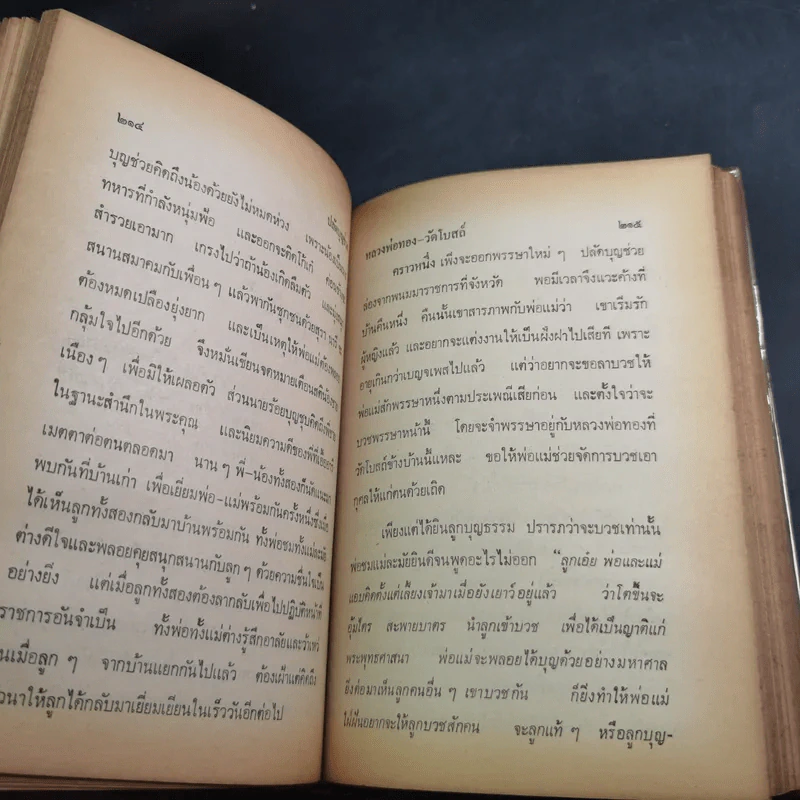 ๒๑๔
บุญช่วยคิดถึงน้องด้วยยังไม่หมดห่วง เพราะน้อง
ทหารที่กำลังหนุ่มฟ้อ และออกจะติดโก้เก๋ ค่อน
สำรวยเอามาก เกรงไปว่าถ้าน้องเกิดลืมตัว และ
สนานสมาคมกับเพื่อน ๆ แล้วพากันซุกซนด้วยสุรา นารี
ต้องหมดเปลืองยุ่งยาก และเป็นเหตุให้พ่อแม่ต้อง
กลุ้มใจไปอีกด้วย จึงหมั่นเขียนจดหมายเตือนสติน้อง
เนือง ๆ เพื่อมิให้เผลอตัว ส่วนนายร้อยบุญชุบคิดถึงพี่ชาย
ในฐานะสำนึกในพระคุณ และนิยมความดีของพี่ที่
เมตตาต่อตนตลอดมา นาน ๆ พี่-น้องทั้งสองก็นัดแนะมา
พบกันที่บ้านเก่า เพื่อเยี่ยมพ่อ-แม่พร้อมกันครั้งหนึ่งซึ่งเมื่อ
ได้เห็นลูกทั้งสองกลับมาบ้านพร้อมกัน ทั้งพ่อชมทั้งแม่มะมัย
ต่างดีใจและพลอยคุยสนุกสนานกับลูก ๆ ด้วยความชื่นใจเป็น
อย่างยิ่ง แต่เมื่อลูกทั้งสองต้องลากลับเพื่อไปปฏิบัติหน้าที่
ราชการอันจำเป็น ทั้งพ่อทั้งแม่ต่างรู้สึกอาลัยและว้าเหว่
นเมื่อลูก ๆ จากบ้านแยกกันไปแล้ว ต้องเฝ้าแต่คิดถึง
วนาให้ลูกได้กลับมาเยี่ยมเยียนในเร็ววันอีกต่อไป
หลวงพ่อทอง-วัดโบสถ์ ๒๑๕
คราวหนึ่ง เพิ่งจะออกพรรษาใหม่ ๆ ปลัดบุญช่วย
ล่องจากพนมมาราชการที่จังหวัด พอมีเวลาจึงแวะค้างที่
บ้านคืนหนึ่ง คืนนั้นเขาสารภาพกับพ่อแม่ว่า เขาเริ่มรัก
ผู้หญิงแล้ว และอยากจะแต่งงานให้เป็นฝั่งฝาไปเสียที เพราะ
อายุเกินกว่าเบญจเพสไปแล้ว แต่ว่าอยากจะขอลาบวชให้
พ่อแม่สักพรรษาหนึ่งตามประเพณีเสียก่อน และตั้งใจว่าจะ
บวชพรรษาหน้านี้ โดยจะจำพรรษาอยู่กับหลวงพ่อทองที่
วัดโบสถ์ข้างบ้านนี้แหละ ขอให้พ่อแม่ช่วยจัดการบวชเอา
กุศลให้แก่ตนด้วยเถิด
เพียงแต่ได้ยินลูกบุญธรรม ปรารภว่าจะบวชเท่านั้น
พ่อชมแม่ละมัยยินดีจนพูดอะไรไม่ออก “ลูกเอ๋ย พ่อและแม่
แอบคิดตั้งแต่เลี้ยงเจ้ามาเมื่อยังเยาว์อยู่แล้ว ว่าโตขึ้นจะ
อุ้มไตร สะพายบาตร นำลูกเข้าบวช เพื่อได้เป็นญาติแก่
พระพุทธศาสนา พ่อแม่จะพลอยได้บุญด้วยอย่างมหาศาล
ยิ่งต่อมาเห็นลูกคนอื่น ๆ เขาบวชกัน ก็ยิ่งทำให้พ่อแม่
ใฝ่ฝันอยากจะให้ลูกบวชสักคน จะลูกแท้ ๆ หรือลูกบุญ-